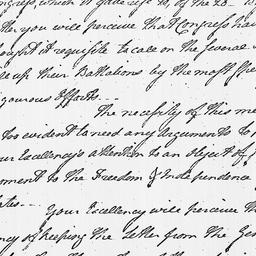 ongress, which it gave up to, of the 23
tter, you will perceive that Congress hav
ought it requisite to call on the several
le up their Battalions by the most Spe
igourous Efforts...
The necessity of this me
too evident to need any Arguments to
our Excellency's attention to an object of
oment to the Freedom & Independence
ates...
Your Excellency will perceive th
ncy of keeping the Letter from the Gen